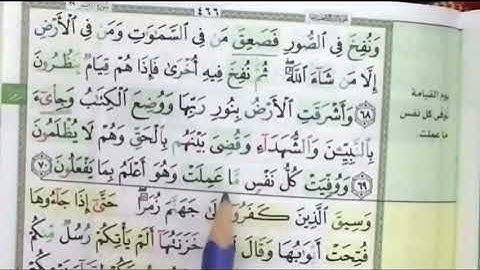 ٤٦٦
وَنُفِخَ فِي ٱلصُّورِ فَصَعِقَ مَن فِي ٱلسَّمَٰوَٰتِ وَمَن فِي ٱلْأَرْضِ
إِلَّا مَن شَآءَ ٱللَّهُ ۖ ثُمَّ نُفِخَ فِيهِ أُخْرَىٰ فَإِذَا هُمْ قِيَامٌ يَنظُرُونَ
٦٨ وَأَشْرَقَتِ ٱلْأَرْضُ بِنُورِ رَبِّهَا وَوُضِعَ ٱلْكِتَٰبُ وَجِا۟ىٓءَ
بِٱلنَّبِيِّۦنَ وَٱلشُّهَدَآءِ وَقُضِيَ بَيْنَهُم بِٱلْحَقِّ وَهُمْ لَا يُظْلَمُونَ
٦٩ وَوُفِّيَتْ كُلُّ نَفْسٍ مَّا عَمِلَتْ وَهُوَ أَعْلَمُ بِمَا يَفْعَلُونَ ٧٠
وَسِيقَ ٱلَّذِينَ كَفَرُوٓا۟ إِلَىٰ جَهَنَّمَ زُمَرًا ۖ حَتَّىٰٓ إِذَا جَآءُوهَا
فُتِحَتْ أَبْوَٰبُهَا وَقَالَ خَزَنَتُهَآ أَلَمْ يَأْتِكُمْ رُسُلٌ مِّنكُمْ
يوم القيامة
توفى كل نفس
ما عملت